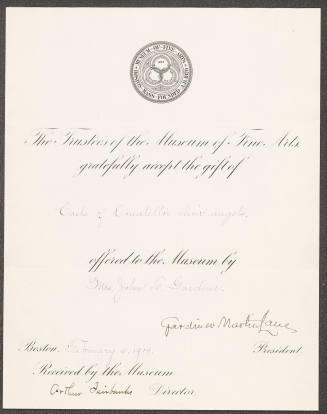 MUSEUM OF FINE ARTS BOSTON MASS.
The Trustees of the Museum of Fine Arts
gratefully accept the gift of
of
offered to the Museum by
Mrs. John L. Gardner.
Gardiner Martin Lane
Boston, February President.
Received by the Museum
Arthur Fairbanks Director.